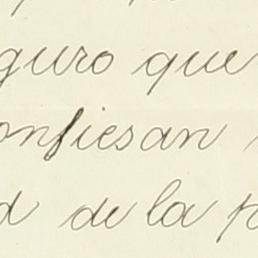 guro que
onfiesan
d de la p